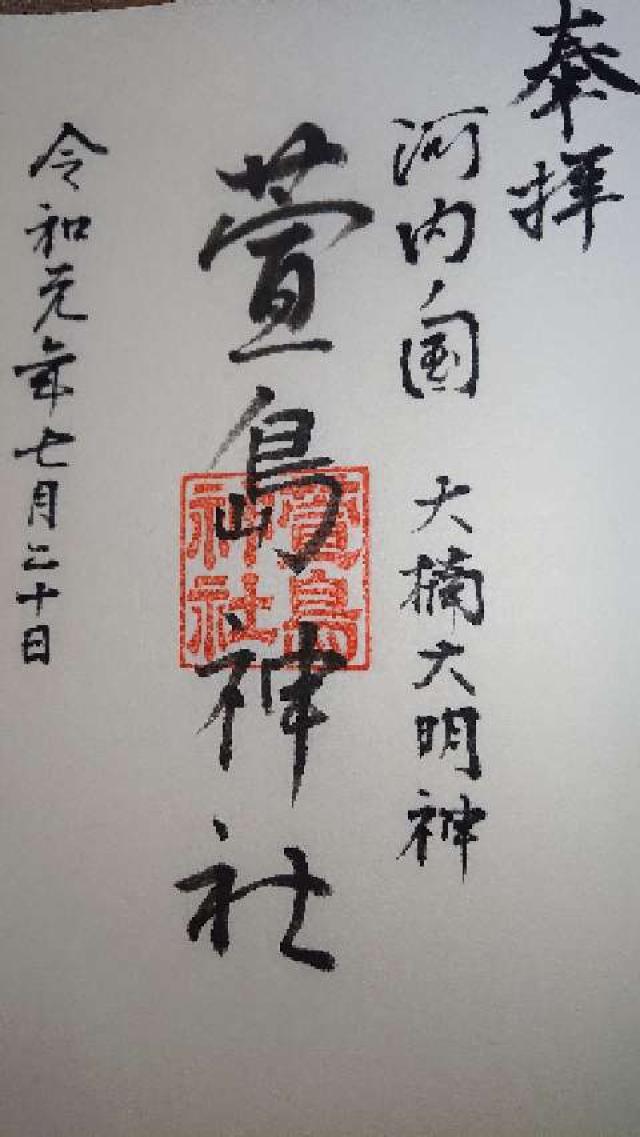 奉拝
河内国 大楠大明神
萱島神社
萱島神社
令和元年七月二十日